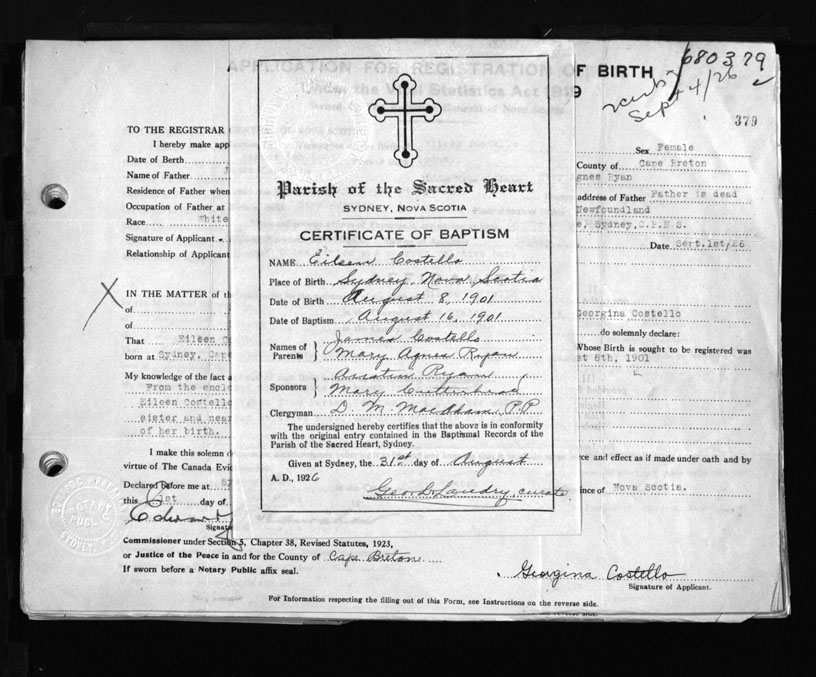 APPLICATION FOR REGISTRATION OF BIRTH
680379
Sept 4/26
379
TO THE REGISTRAR
I hereby make app
Date of Birth
Name of Father
Residence of Father when
Occupation of Father at
Race White
Signature of Applicant
Relationship of Applicant
IN THE MATTER of th
of
of
That Eileen Co
born at Sydney, Cape
My knowledge of the fact a
From the enclo
Eileen Costello
sister and near
of her birth.
I make this solemn d
virtue of The Canada Evi
Declared before me at Sy
this 1st day of
Edward
Signatu
Parish of the Sacred Heart
SYDNEY, NOVA SCOTIA
CERTIFICATE OF BAPTISM
NAME Eileen Costello
Place of Birth Sydney, Nova Scotia
Date of Birth August 8, 1901
Date of Baptism August 16, 1901
Names of Parents James Costello
Mary Agnes Ryan
Sponsors Austin Ryan
Mary
Clergyman D. M. MacAdam, P.P.
The undersigned hereby certifies that the above is in conformity
with the original entry contained in the Baptismal Records of the
Parish of the Sacred Heart, Sydney.
Given at Sydney, the 31st day of August
A. D., 1926
Geo. L. Landry, curate
Sex Female
County of Cape Breton
gnes Ryan
address of Father Father is dead
Newfoundland
e, Sydney, C.B.N.S.
Date Sept. 1st/26
Georgina Costello
do solemnly declare:
Whose Birth is sought to be registered was
st 8th, 1901
ce and effect as if made under oath and by
nce of Nova Scotia.
Commissioner under Section 5, Chapter 38, Revised Statutes, 1923,
or Justice of the Peace in and for the County of Cape Breton
If sworn before a Notary Public affix seal.
Georgina Costello
Signature of Applicant.
For Information respecting the filling out of this Form, see Instructions on the reverse side.